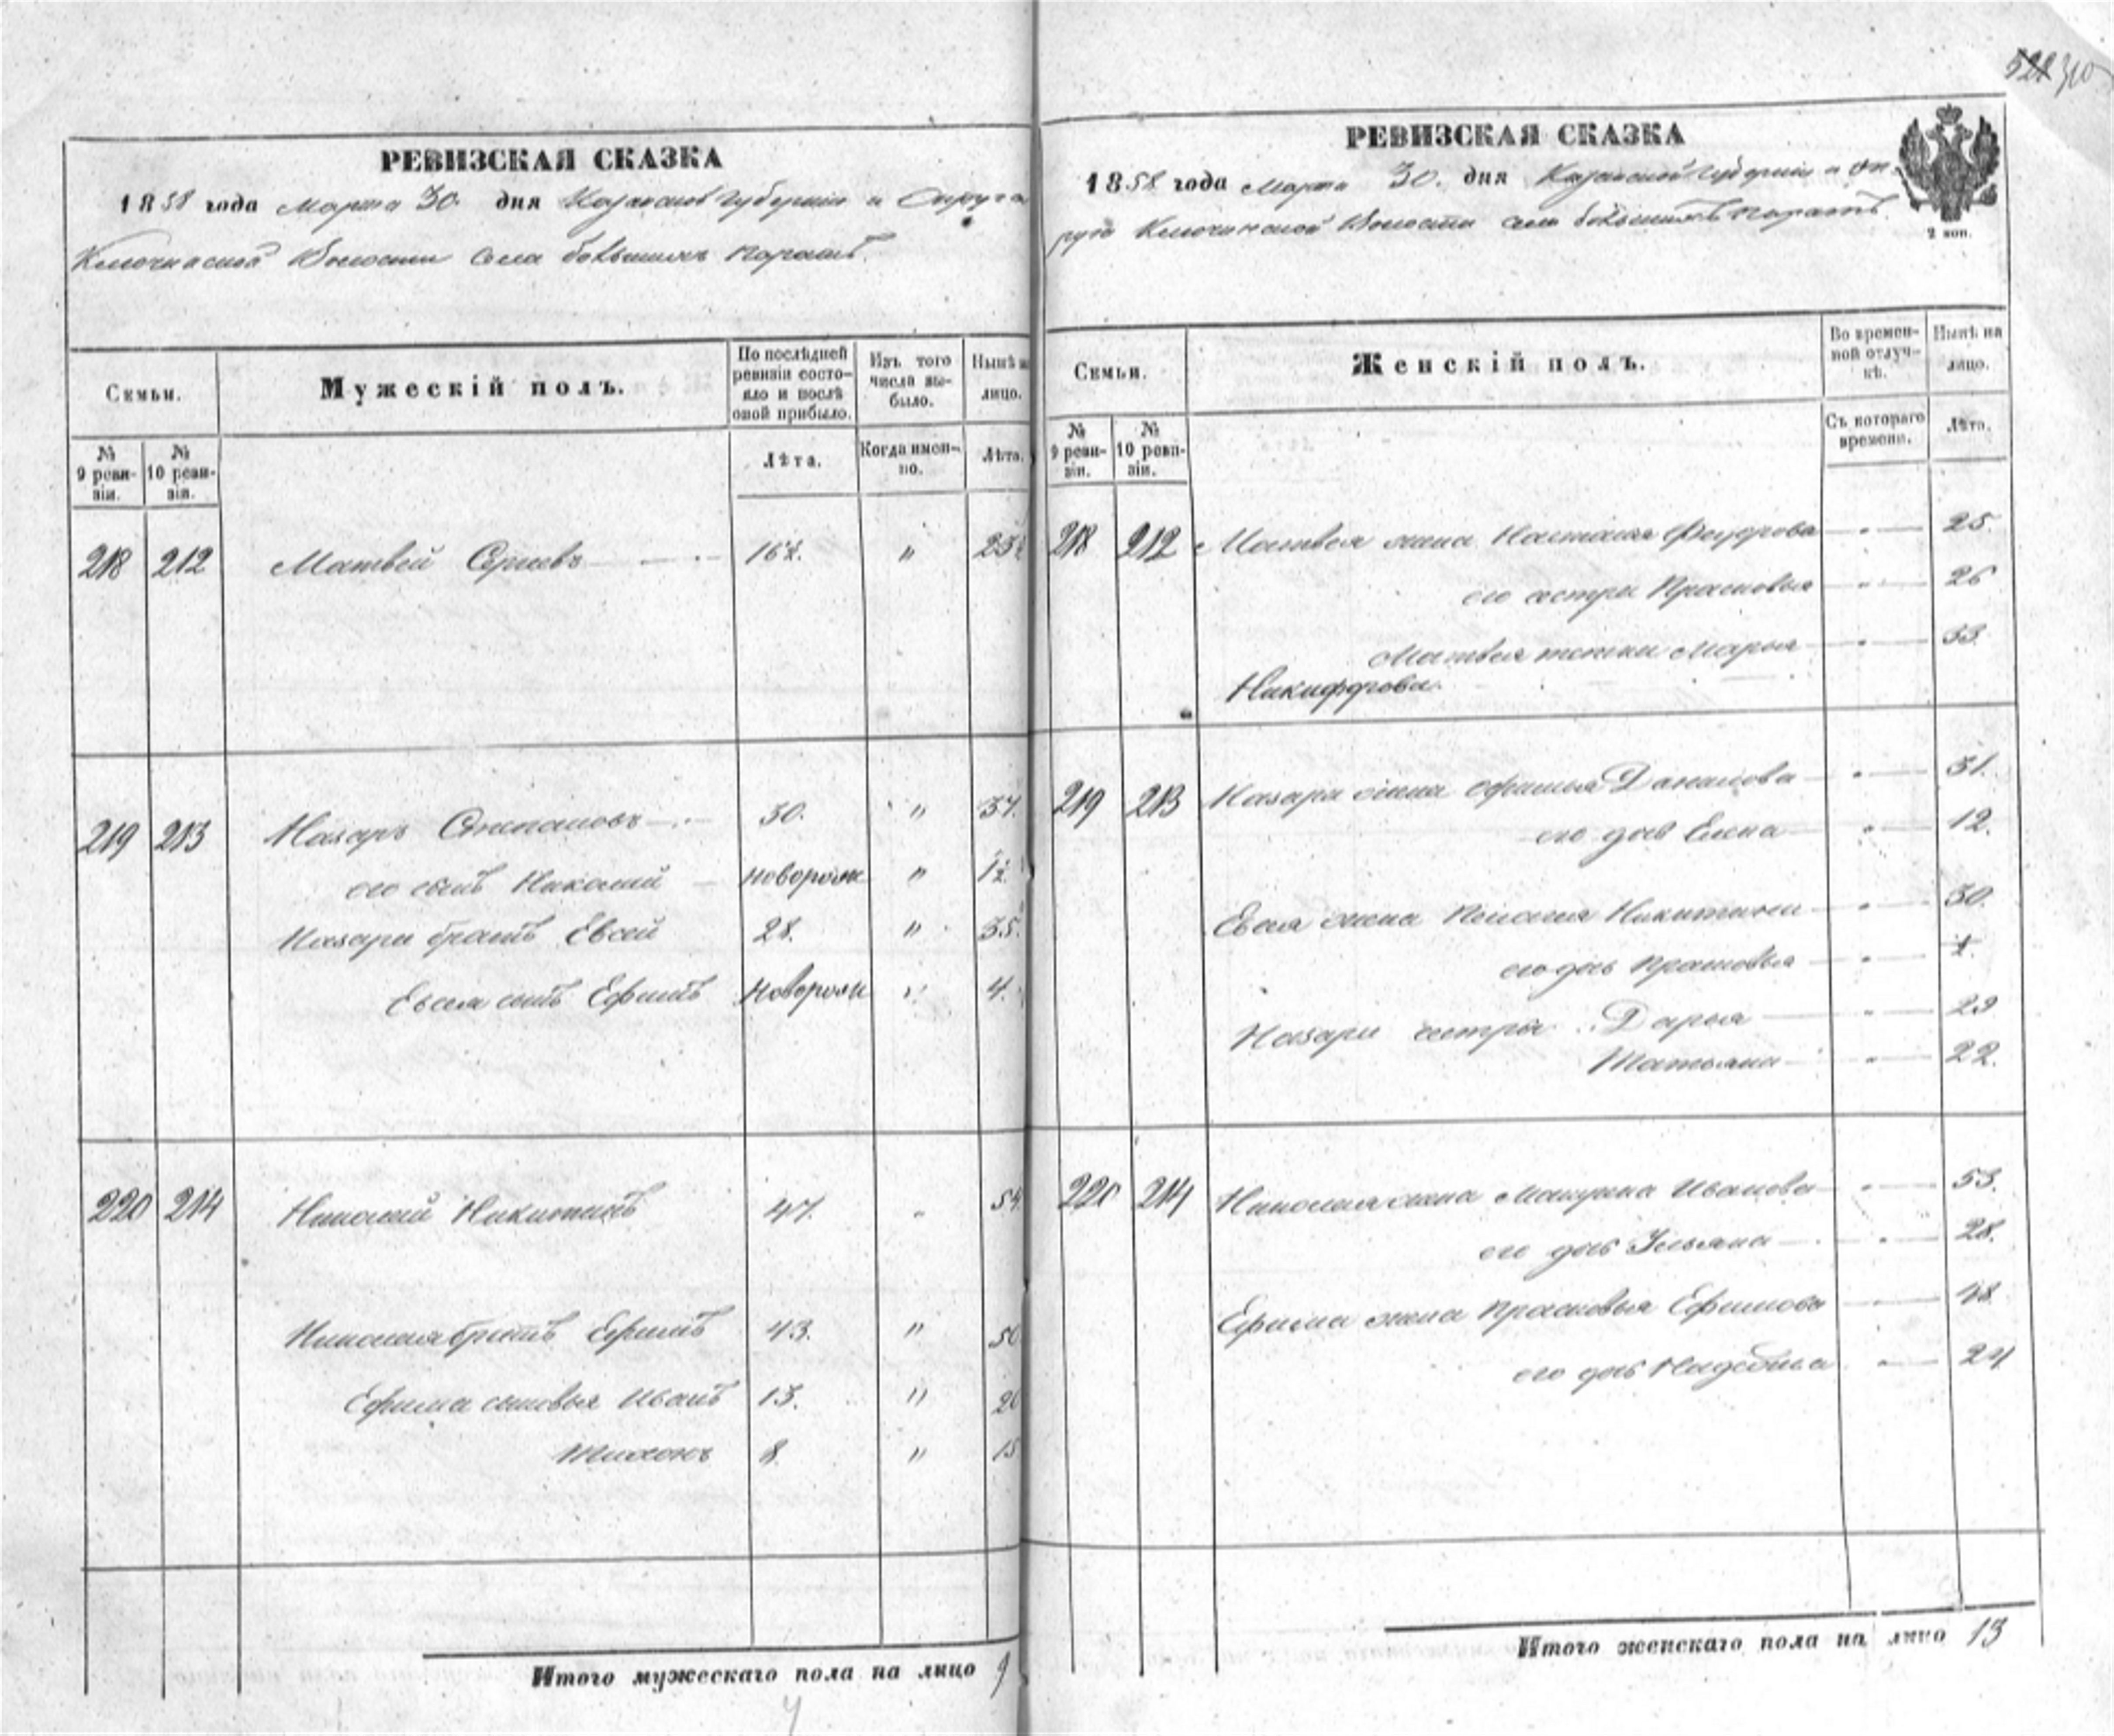 РЕВИЗСКАЯ СКАЗКА
1858 года Марта 30. дня Казанской Губернiи и Округа
Ключинской Волости Села большихъ Паратъ.
Семьи.
Мужескiй полъ.
По послѣдней ревизiи состояло и послѣ оной прибыло.
Изъ того числа выбыло.
Нынѣ на лицо.
№ 9 ревизiи.
№ 10 ревизiи.
Лѣта.
Когда именно.
Лѣта.
218 212 Матвей Сергѣевъ 16½. " 23½
219 213 Назаръ Степановъ 30. " 37.
его сынъ Николай новорож " 1½
Назара братъ Евсей 28. " 35.
Евсея сынъ Ефимъ Новорож " 4.
220 214 Николай Никитинъ 47. " 54
Николая братъ Ефимъ 43. " 50
Ефима сыновья Иванъ 13. " 20
Тихонъ 8. " 15
Итого мужескаго пола на лицо 9
528 310
РЕВИЗСКАЯ СКАЗКА
1858 года Марта 30. дня Казанской Губернiи и Ок-
руга Ключинской Волости села большихъ Паратъ.
2 коп.
Семьи.
Женскiй полъ.
Во временной отлучкѣ.
Нынѣ на лицо.
№ 9 ревизiи.
№ 10 ревизiи.
Съ котораго времени.
Лѣта.
218 212 Матвея жена Настасья Федорова " 25.
его сестра Прасковья " 26
Матвея тетка Марья " 33.
Никифорова.
219 213 Назара жена Офимья Данилова " 31.
его дочь Елена " 12.
Евсея жена Пелагея Никитина " 30.
его дочь Прасковья "
Назара сестры Дарья " 29
Татьяна " 22.
220 214 Николая жена Макрина Иванова " 53.
его дочь Ульяна " 28.
Ефима жена Прасковья Ефимова " 48
его дочь Надежда " 24
Итого женскаго пола на лицо 13